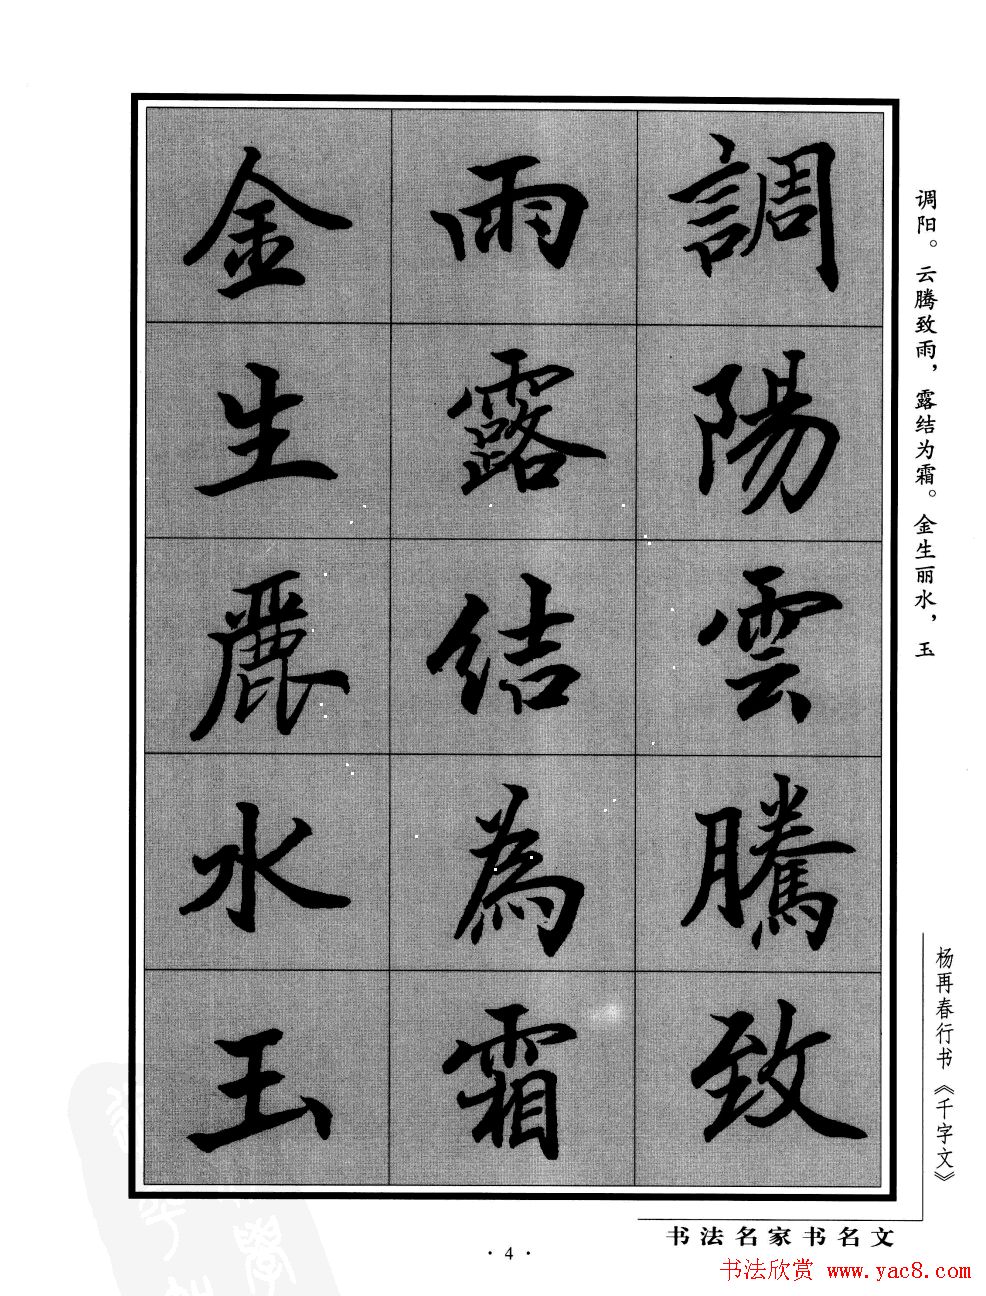 調陽雲騰致
雨露结為霜
金生麗水玉
调阳。云腾致雨，露结为霜。金生丽水，玉
杨再春行书《千字文》
书法名家书名文
· 4 ·
书法欣赏 www.yac8.com